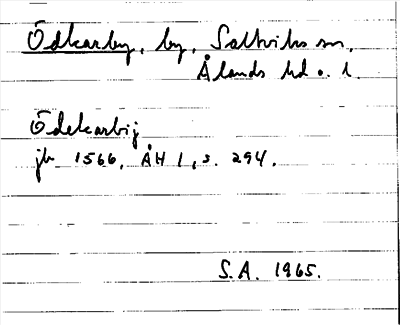 Ödkarby, by, Saltviks sn,
Ålands hd o. l.
Ödekarbij
jb 1566, ÅH 1, s. 294.
S.A. 1965.